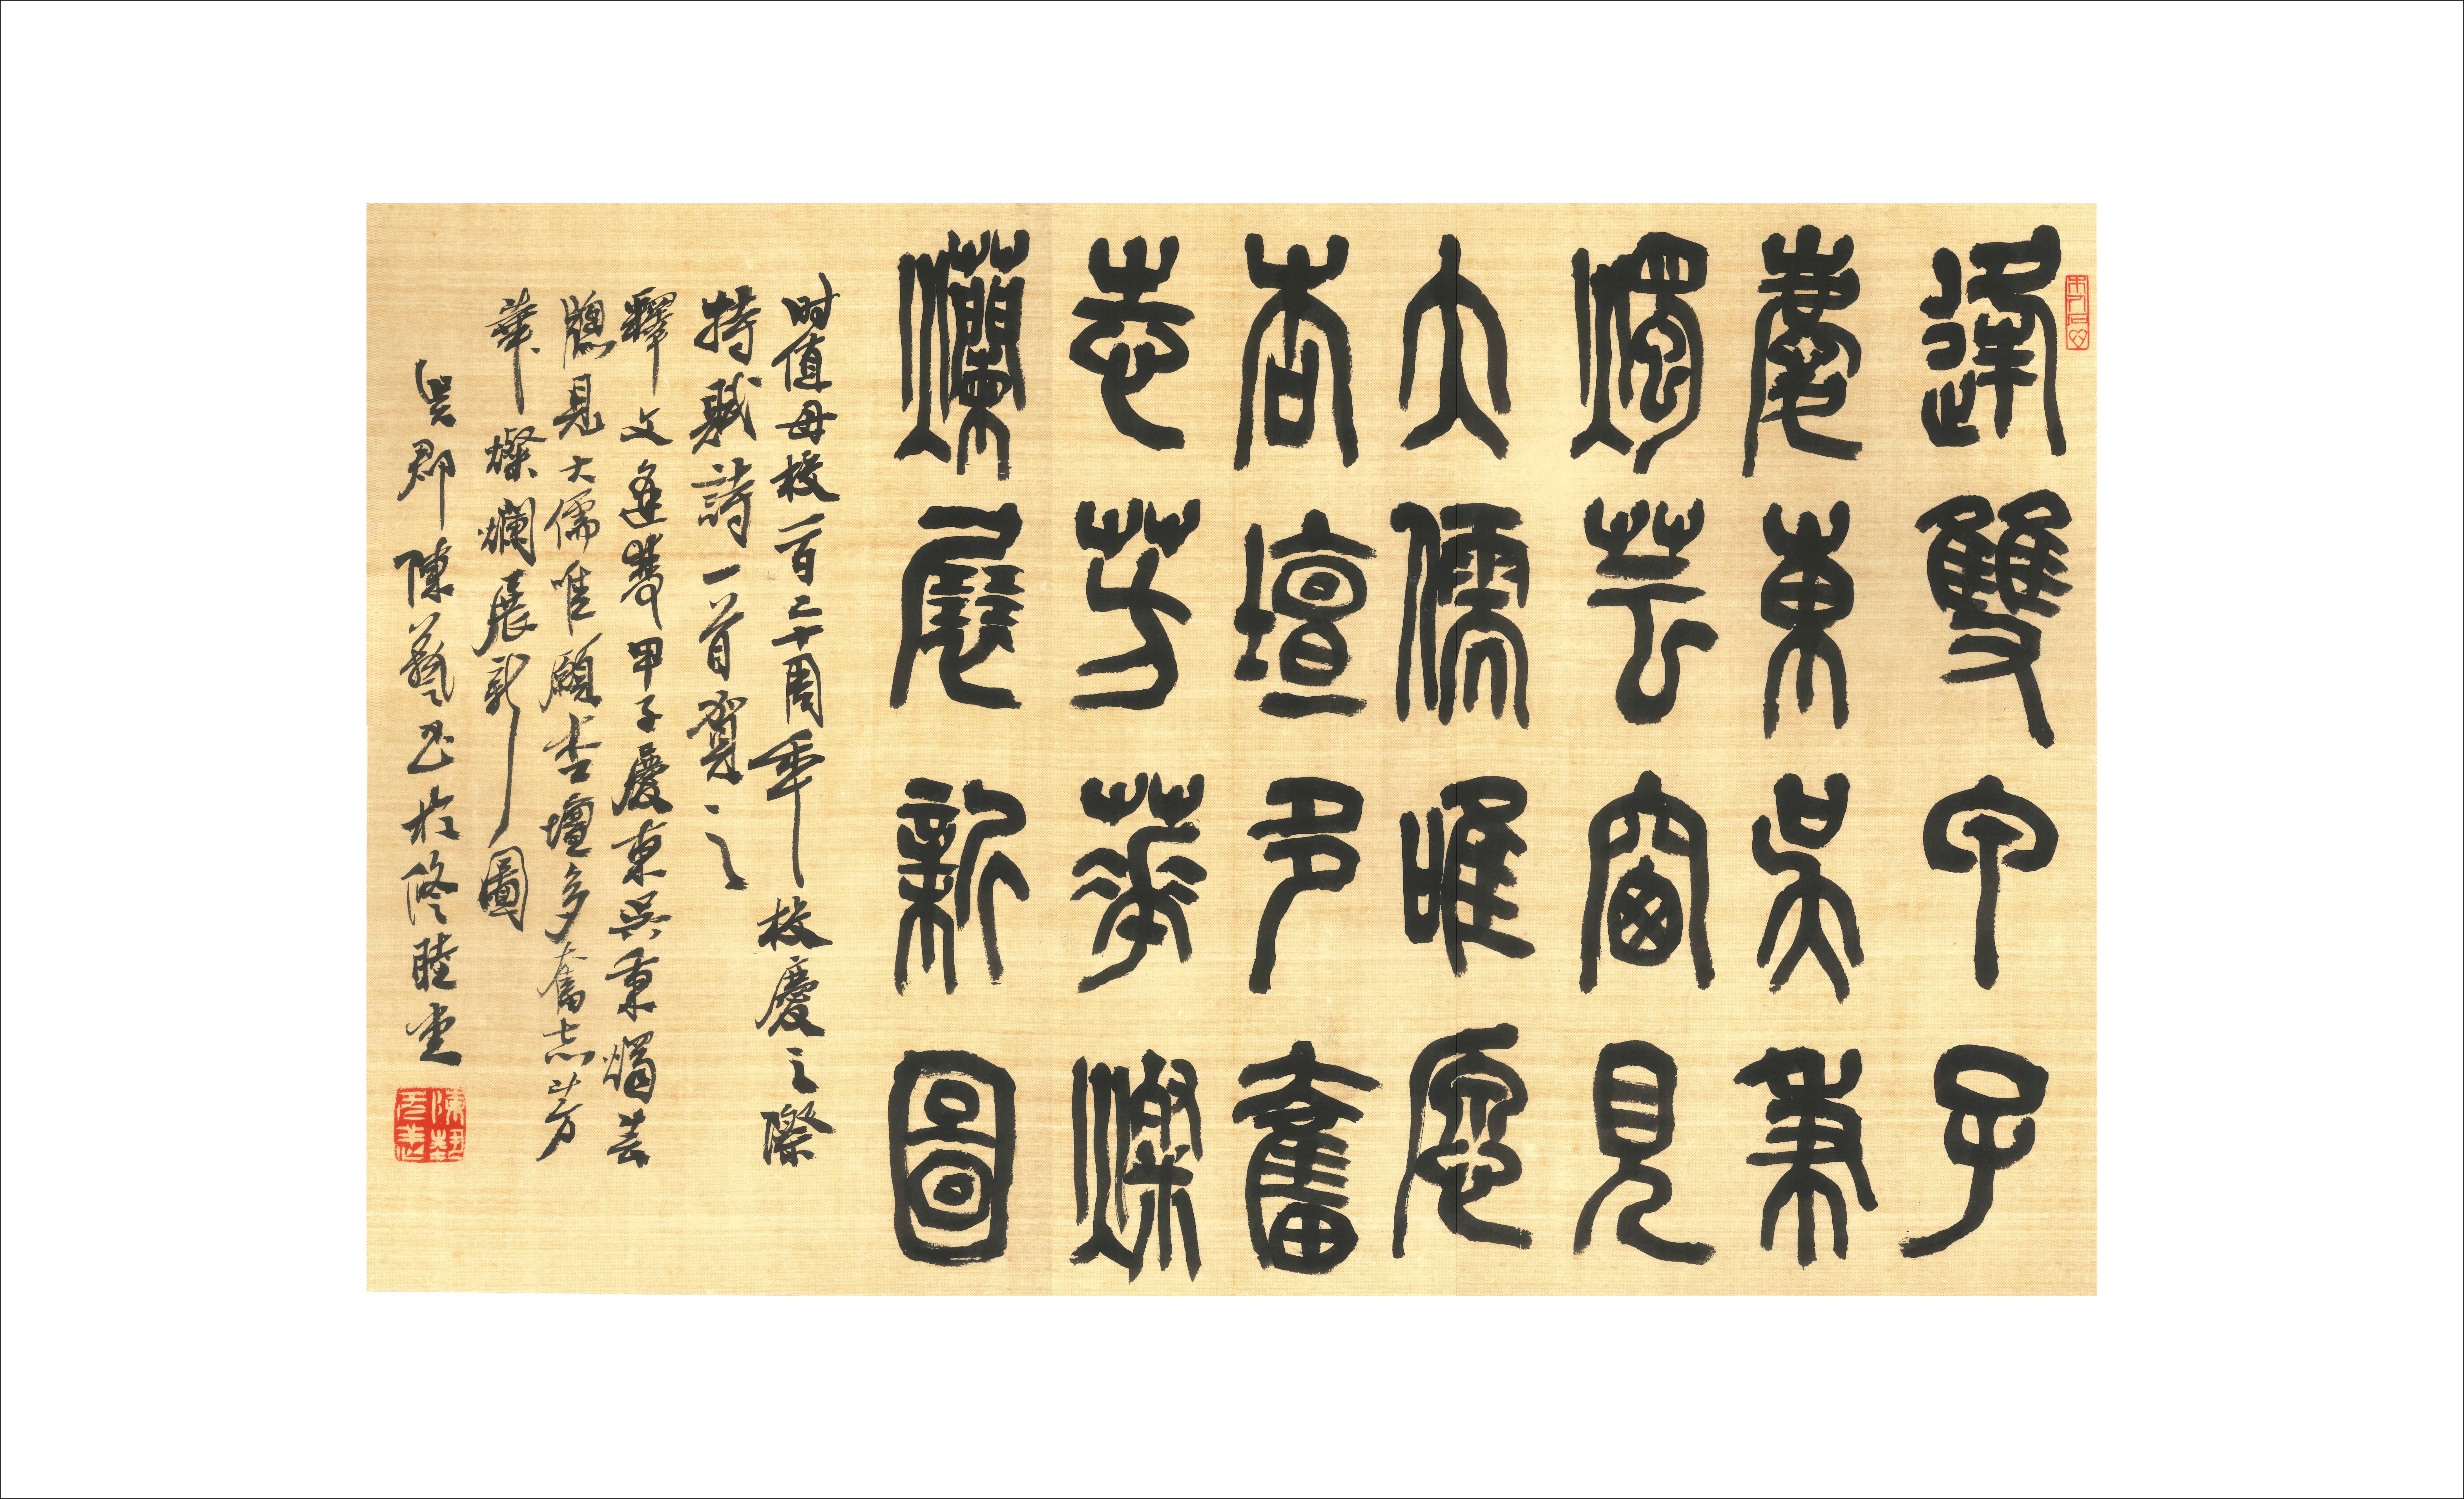 逢雙甲子
慶東吳秉
燭芸窗見
大儒唯愿
杏壇多奮
志芳華燦
爛展新圖
时值母校一百二十周年校慶之際
特賦詩一首賀之
釋文逢雙甲子慶東吳秉燭芸
窻見大儒唯願杏壇多奮志芳
華燦爛展新圖
吳郡陳藝书於修睦堂